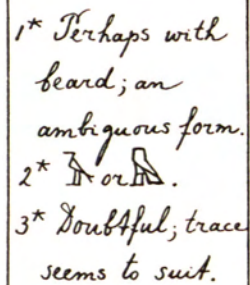 1* Perhaps with
beard; an
ambiguous form.
2* or .
3* Doubtful; trace
seems to suit.